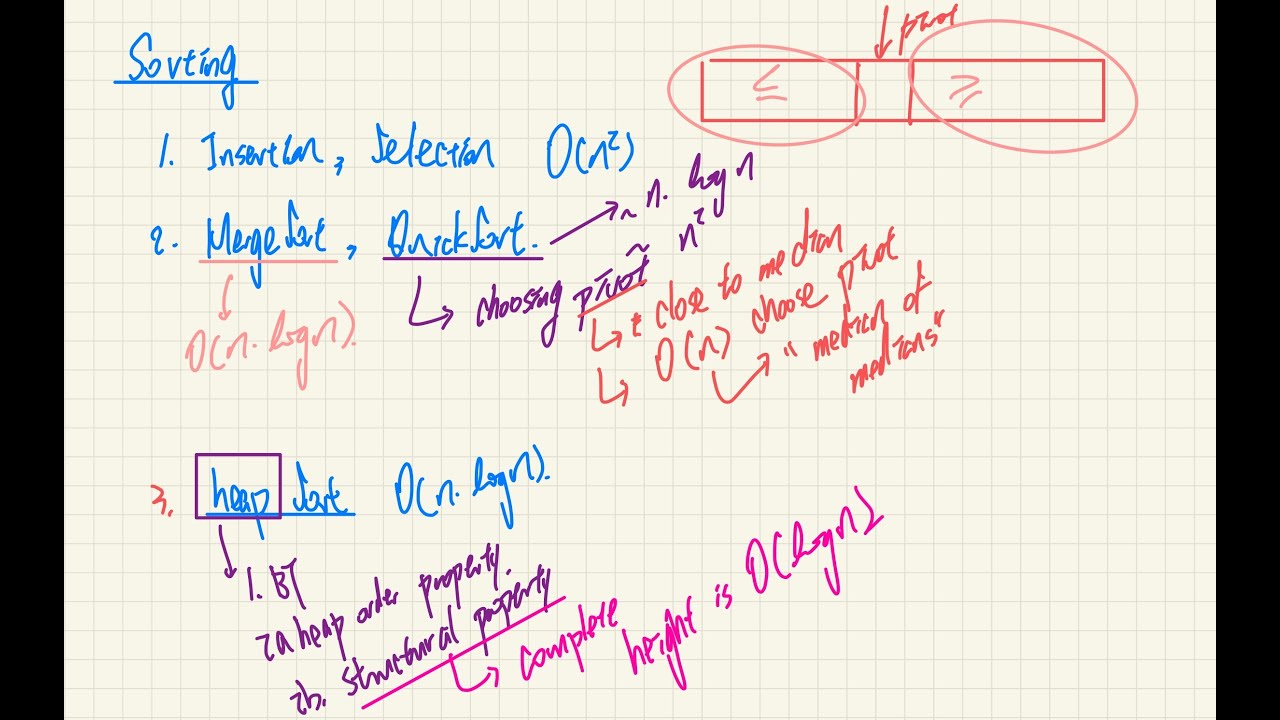 Sorting
↓ pivot
≤ ≥
1. Insertion, Selection O(n²)
2. MergeSort, QuickSort. → ~ n. log n
~ n²
↳ choosing pivot
O(n. log n).
↳ * close to median
↳ O(n) choose pivot
↳ "median of
medians"
3. heap Sort O(n. log n).
1. BT
2a heap order property.
2b. structural property
↳ complete
height is O(log n)